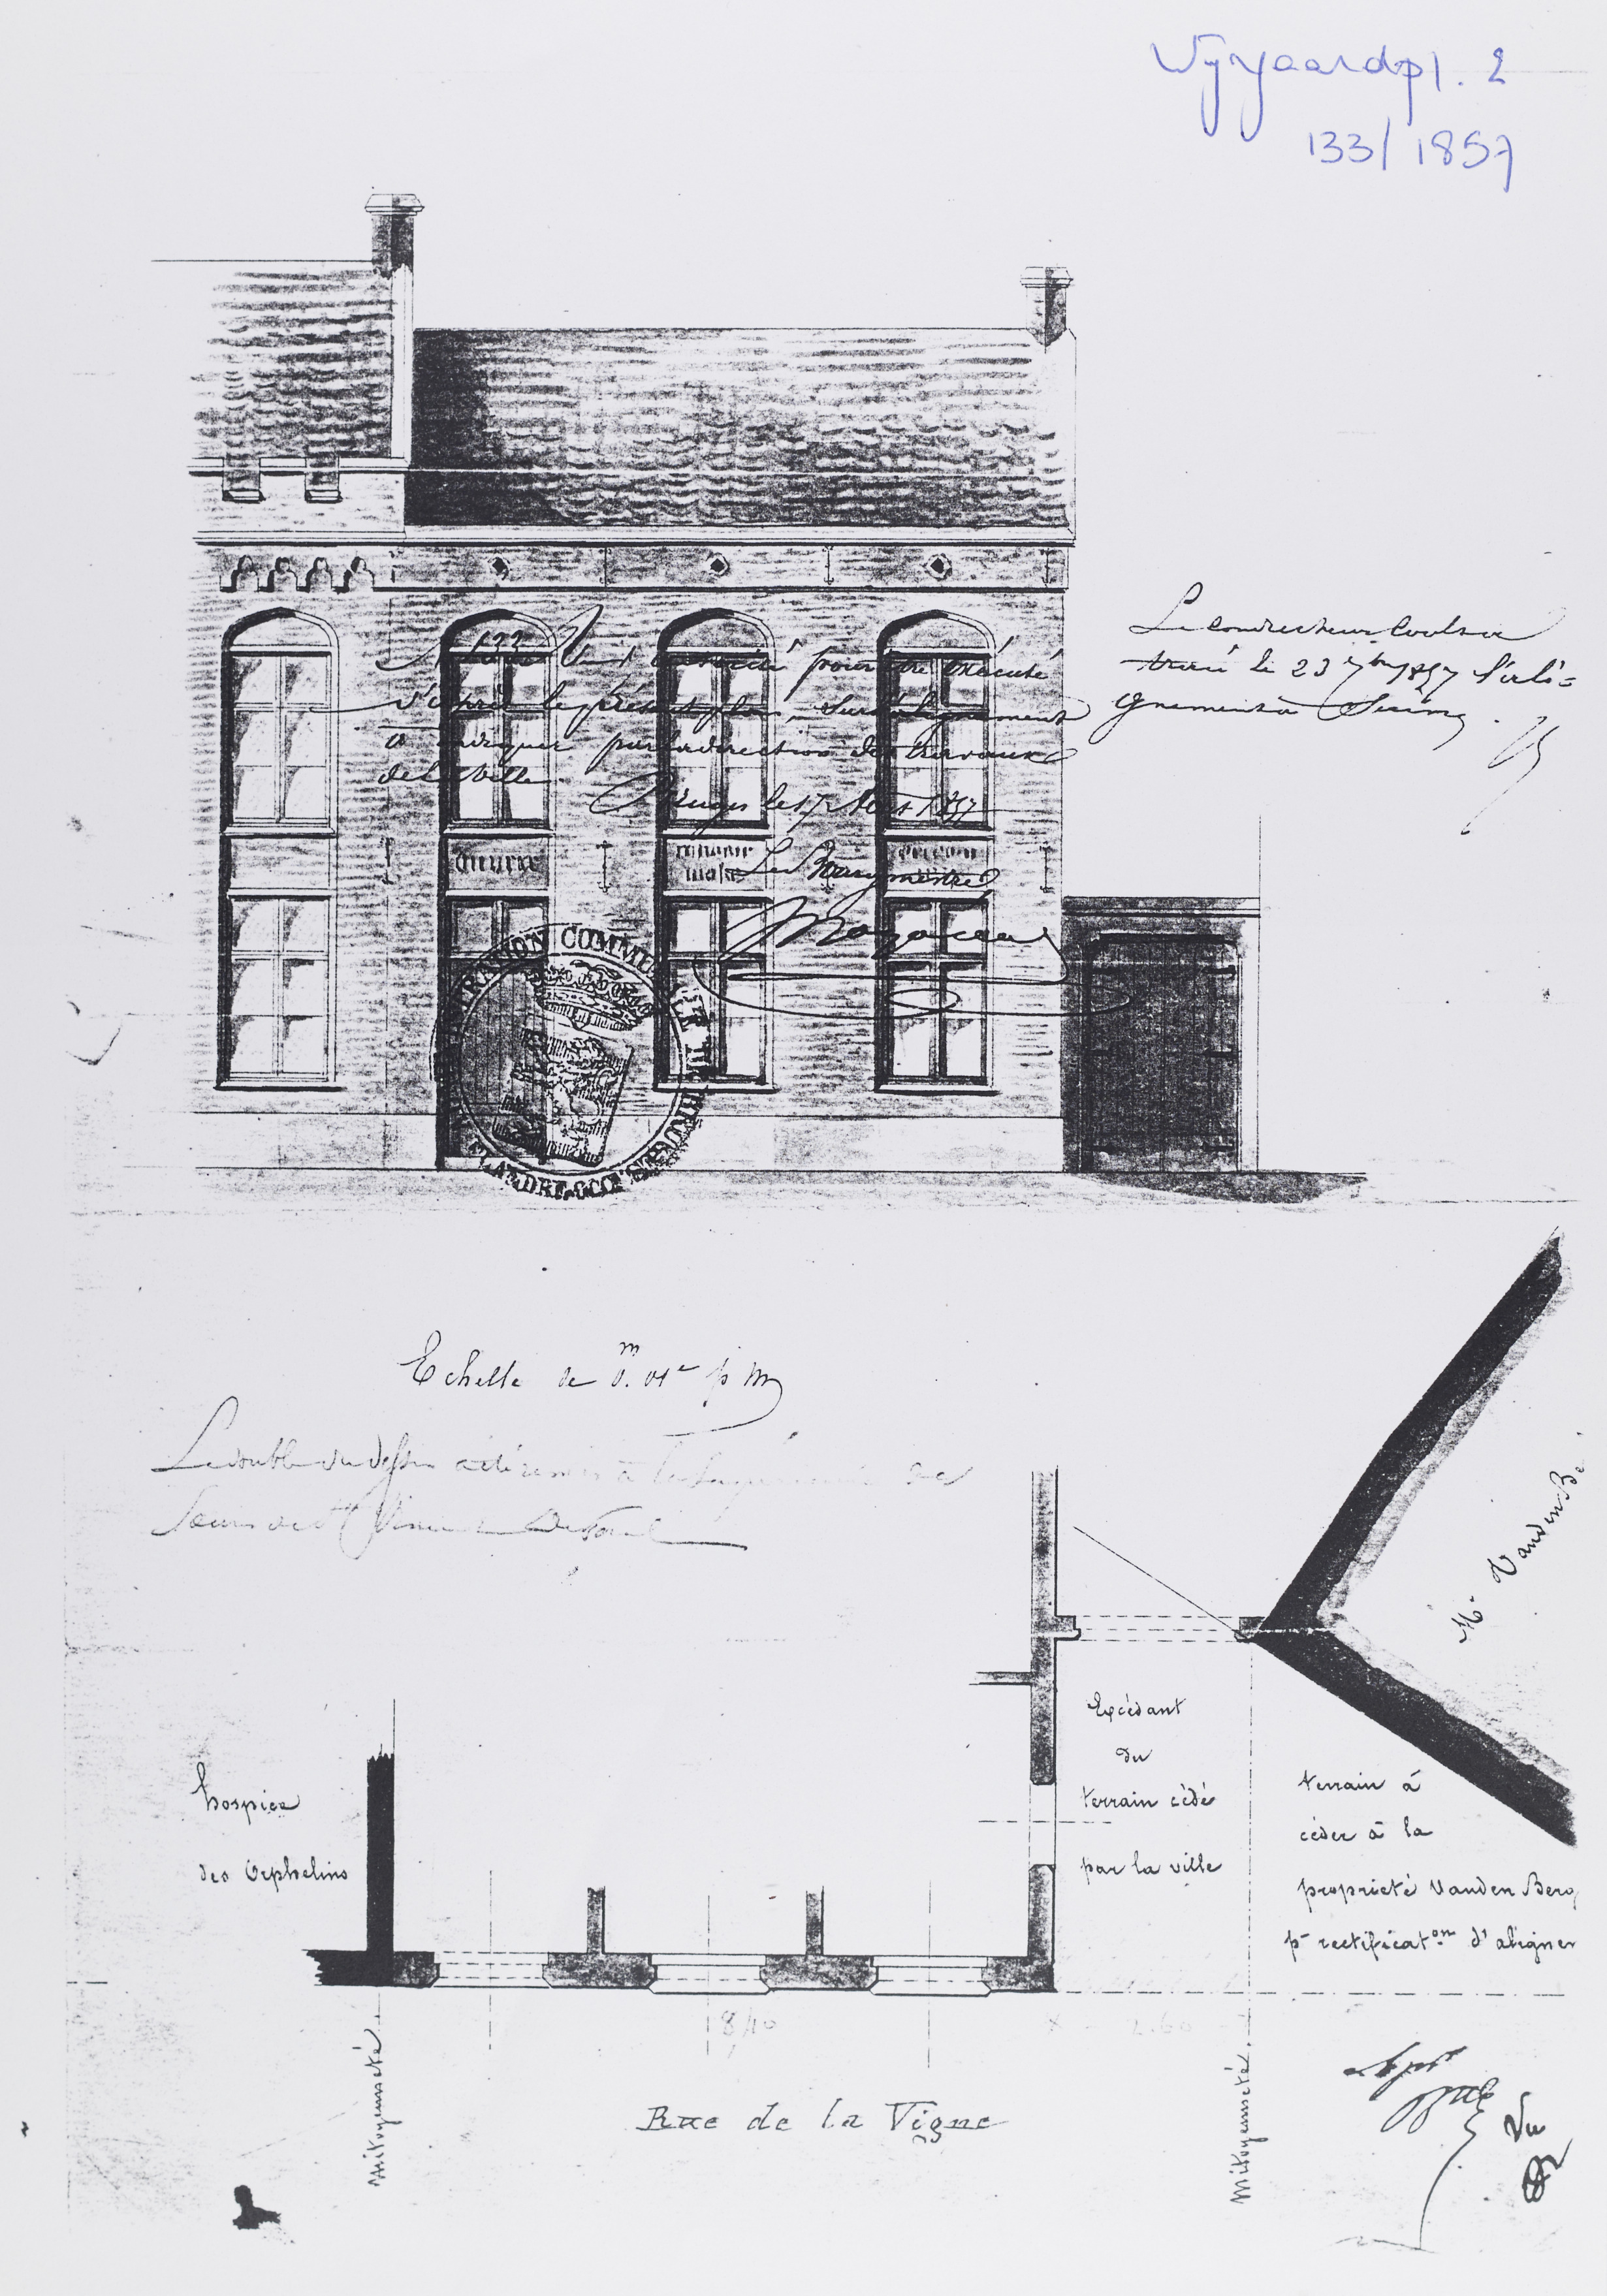 Wijngaardpl. 2
133/1857
N 133 Vu et autorisé pour être exécuté
d'après le présent plan, sur l'alignement
à indiquer par la direction des travaux
de la Ville
Bruges le 17 Août 1857
Le Bourgmestre
Le conducteur
tracé le 23 7bre 1857 l'ali=
gnement
ADMINISTRATION COMMUNALE DE BRUGES
FLANDRE OCC
Echelle de 0.m 01c p m
Le double du dessin a été remis à la
Soeurs de St Vincent De Paul
Mr. Vanden B
Excédant
du
terrain cédé
par la ville
terrain à
céder à la
proprieté Vanden Berg
pr rectificaton d'aligner
hospice
des Orphelins
8,40
2.60
mitoyenneté.
mitoyenneté.
Rue de la Vigne
Vu